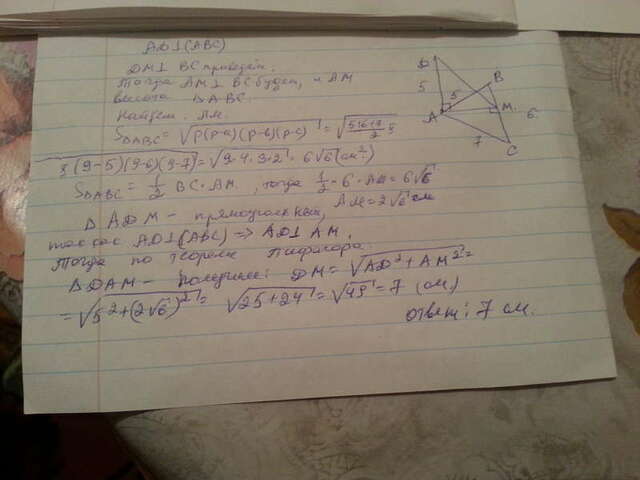 AD⊥(ABC)
DM⊥ BC проведём.
Тогда AM⊥ BC будет, и AM
высота ΔABC.
Найдем AM.
SΔABC = √p(p-a)(p-b)(p-c) = √(5+6+7)/2 ·
9(9-5)(9-6)(9-7) = √9·4·3·2 = 6√6 (см²)
SΔABC = 1/2 BC·AM, тогда 1/2·6·AM = 6√6
AM = 2√6 см
ΔADM – прямоугольный,
так как AD⊥(ABC) => AD⊥AM.
Тогда по теореме Пифагора
ΔDAM – получим: DM = √AD²+AM² =
= √5²+(2√6)² = √25+24 = √49 = 7 (см)
Ответ: 7 см.
D
5
5
B
A
M
6
7
C